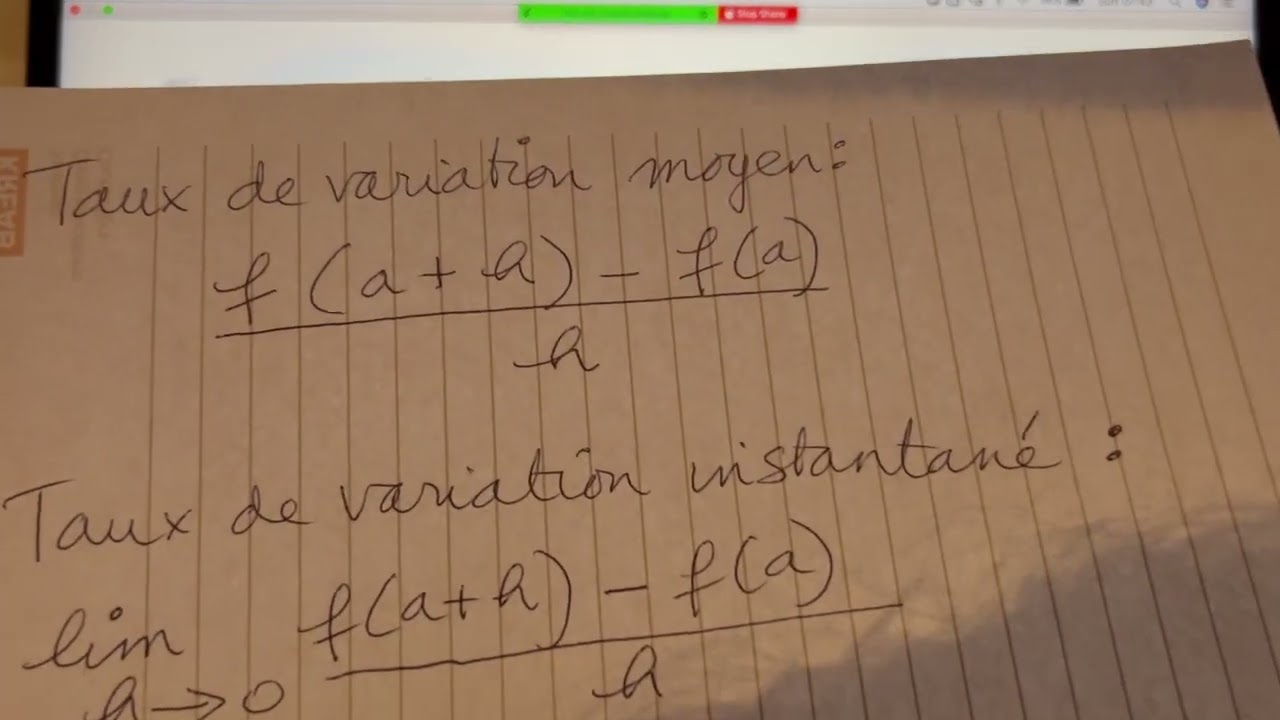 Stop Share
Taux de variation moyen:
f(a+h) - f(a)
h
Taux de variation instantané :
lim f(a+h) - f(a)
h→0 h